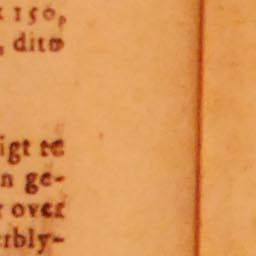 x 150,
, dito
igt te
n ge-
r over
erbly-